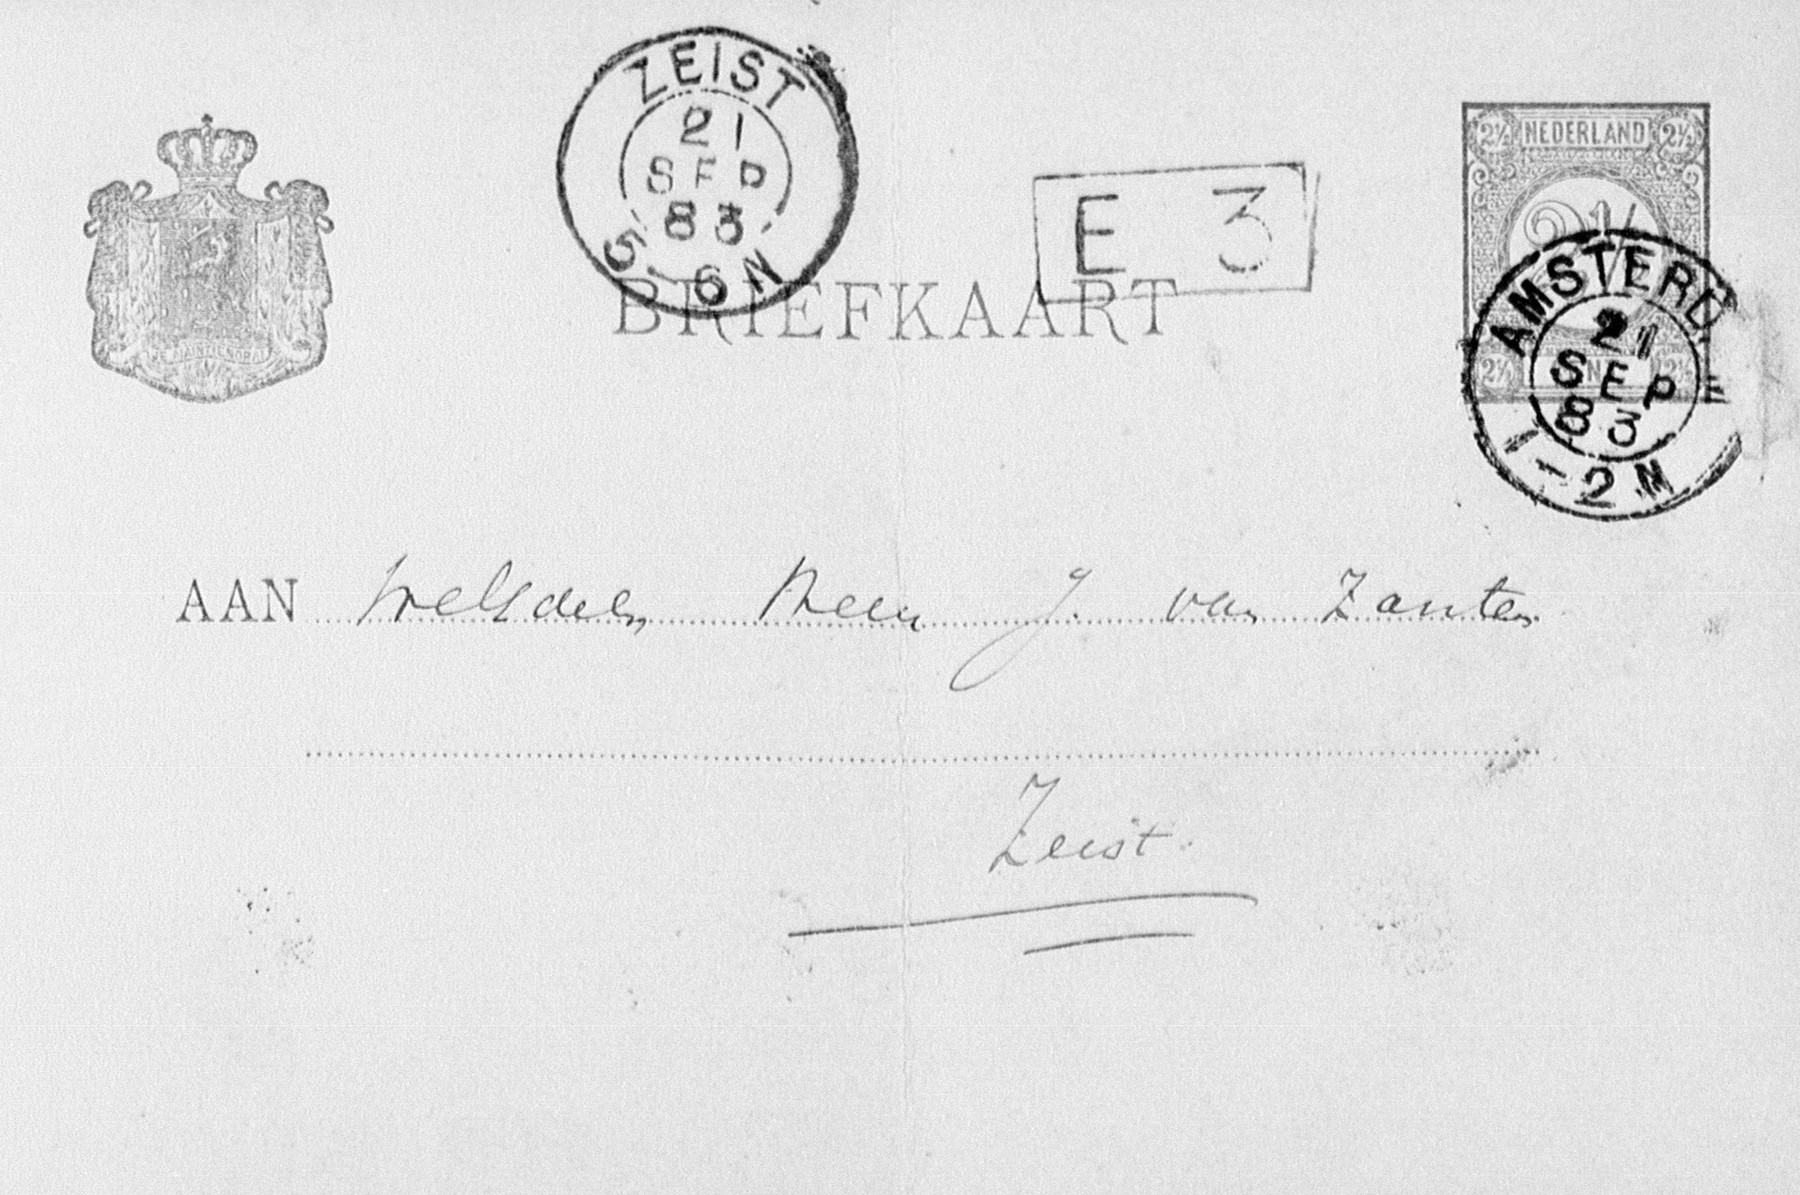 ZEIST
21
SEP
83
5-6N
E 3
2½ NEDERLAND 2½
2½
AMSTERD
21
SEP
83
1-2N
2½
JE MAINTIENDRAI
BRIEFKAART
AAN WelEdelen Heer J. van Zanten
Zeist.